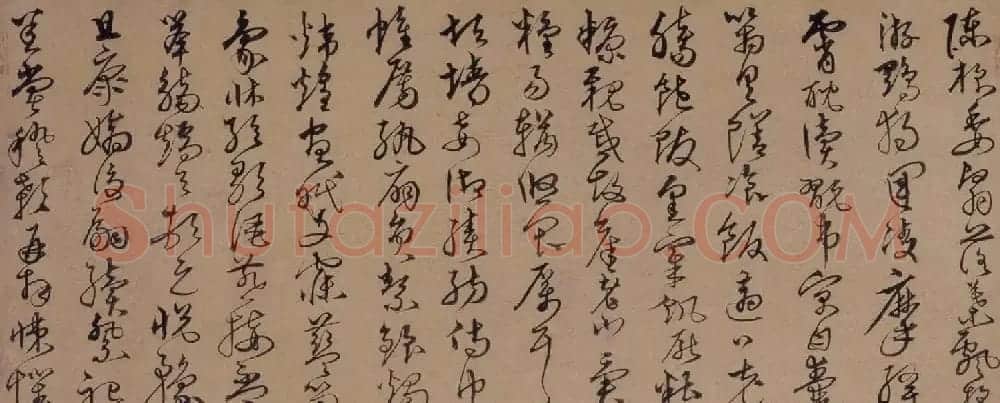 陳根委翳落葉飄飖
游鵾獨運凌摩絳
霄耽讀翫市寓目囊
箱具膳飡飯適口充
腸飽飫烹宰飢厭糟
糠親戚故舊老少異
糧易輶攸畏屬耳
垣墻妾御績紡侍巾
帷房紈扇員潔銀燭
煒煌晝眠夕寐藍筍
象床弦歌酒讌接盃
舉觴矯手頓足悅豫
且康嫡後嗣續祭祀
蒸嘗稽顙再拜悚懼
Shufaziliao.COM